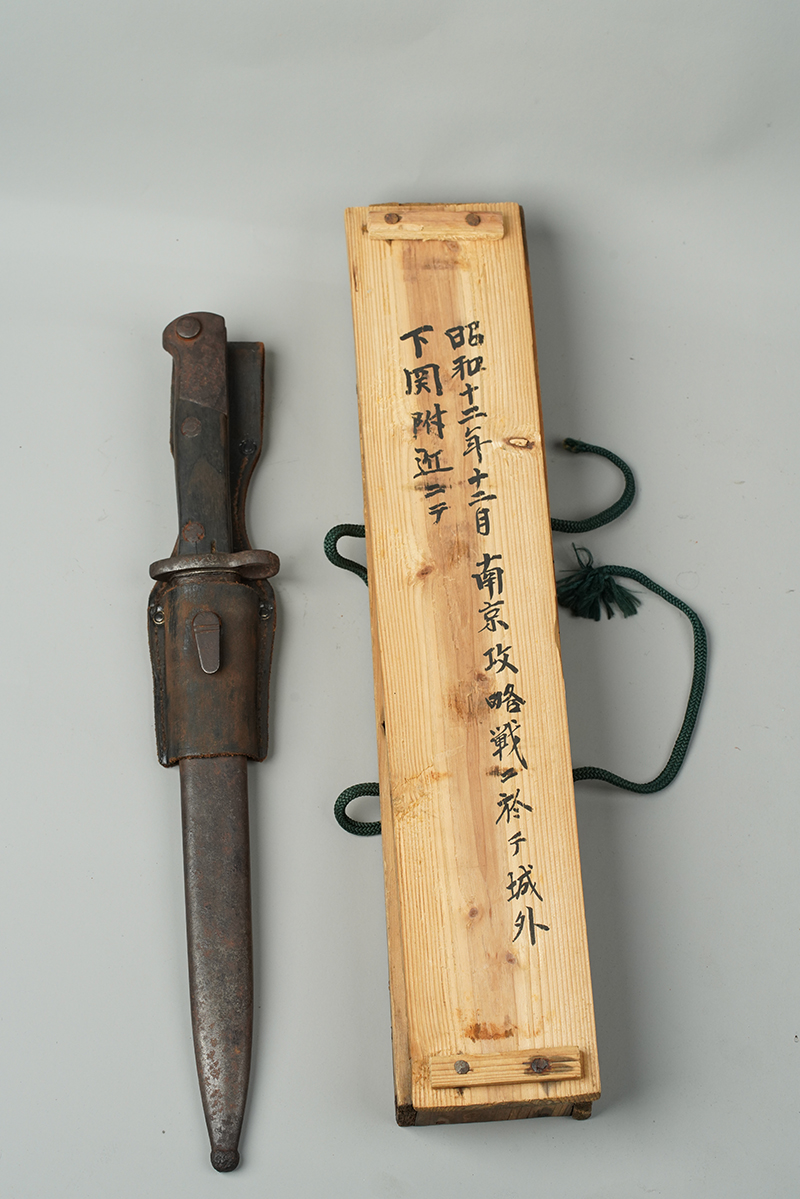 昭和十二年十二月 南京攻略戦ニ於テ城外
下関附近ニテ